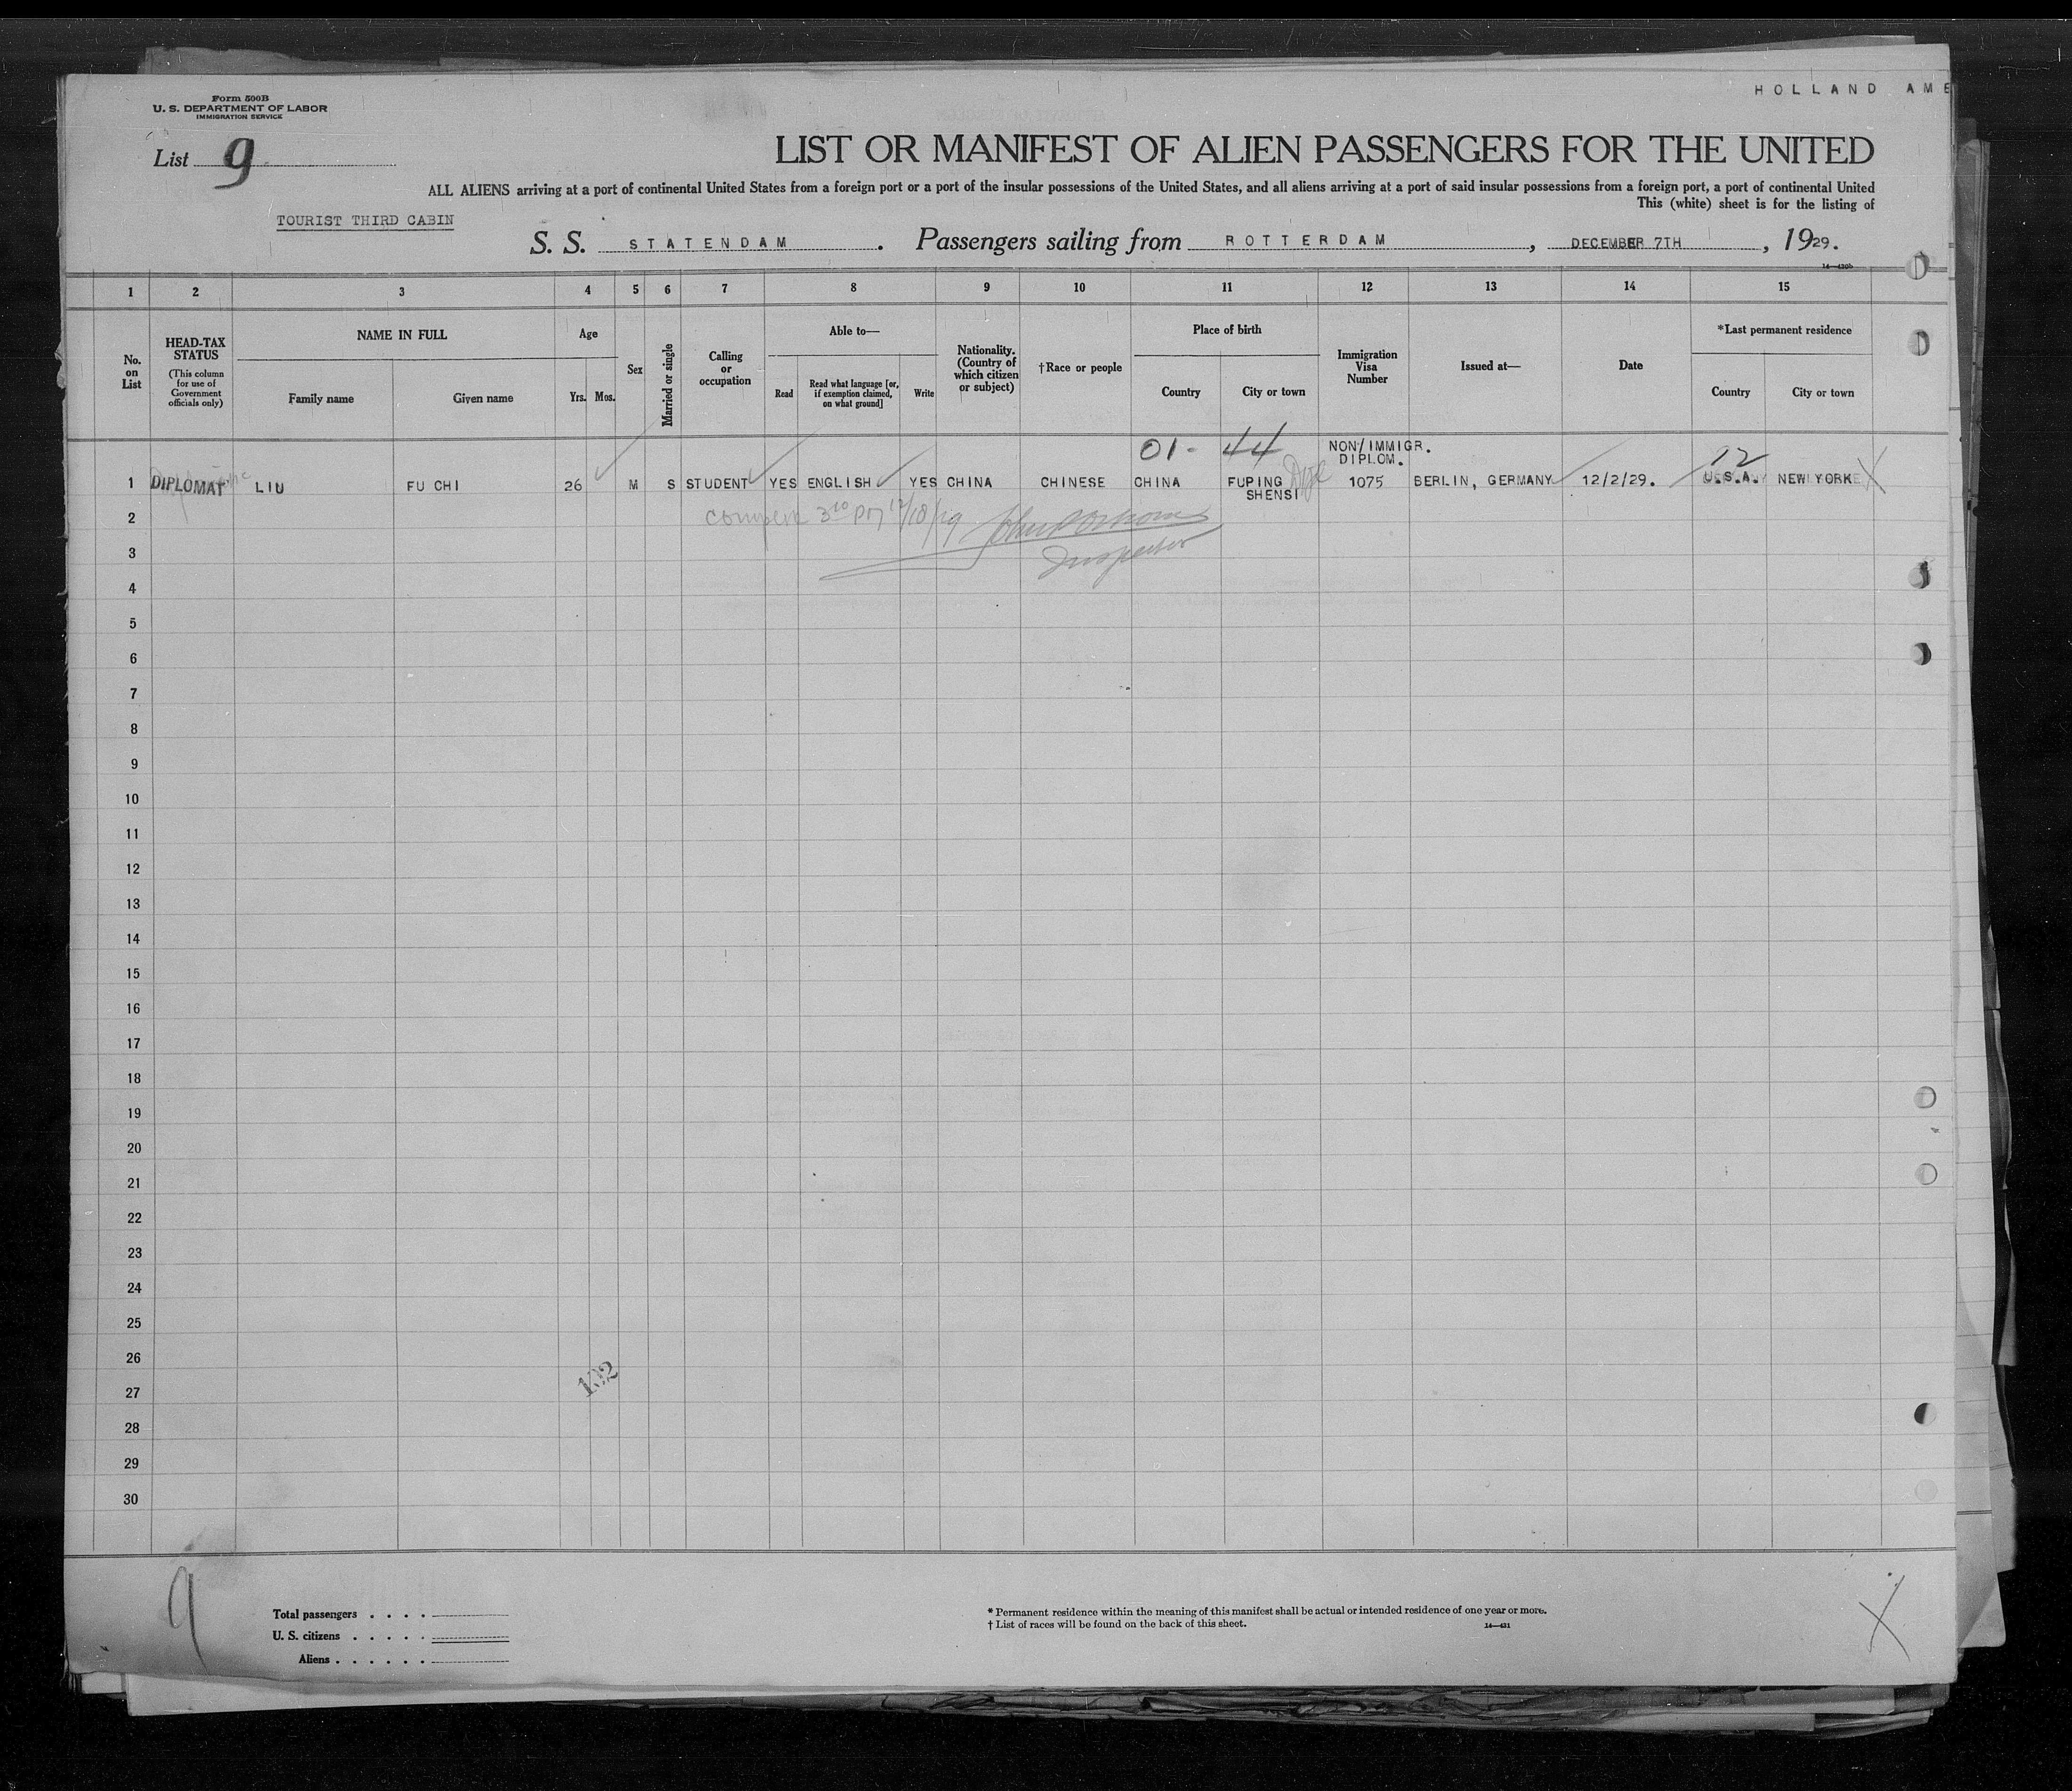 HOLLAND AME
Form 500B
U. S. DEPARTMENT OF LABOR
IMMIGRATION SERVICE
List 9
LIST OR MANIFEST OF ALIEN PASSENGERS FOR THE UNITED
ALL ALIENS arriving at a port of continental United States from a foreign port or a port of the insular possessions of the United States, and all aliens arriving at a port of said insular possessions from a foreign port, a port of continental United
This (white) sheet is for the listing of
TOURIST THIRD CABIN
S. S. STATENDAM. Passengers sailing from ROTTERDAM, DECEMBER 7TH, 1929.
14—420b
1 2 3 4 5 6 7 8 9 10 11 12 13 14 15
No. on List
HEAD-TAX STATUS
(This column for use of Government officials only)
NAME IN FULL
Family name Given name
Age
Yrs. Mos.
Sex
Married or single
Calling or occupation
Able to—
Read
Read what language [or, if exemption claimed, on what ground]
Write
Nationality. (Country of which citizen or subject)
†Race or people
Place of birth
Country City or town
Immigration Visa Number
Issued at—
Date
*Last permanent residence
Country City or town
01- 44 NON/IMMIGR. DIPLOM. 12
1 DIPLOMAT LIU FU CHI 26 M S STUDENT YES ENGLISH YES CHINA CHINESE CHINA FUPING SHENSI 1075 BERLIN, GERMANY 12/2/29. U.S.A. NEW YORK X
2
Inspector
3
4
5
6
7
8
9
10
11
12
13
14
15
16
17
18
19
20
21
22
23
24
25
26
132
27
28
29
30
9
Total passengers . . . .
U. S. citizens . . . . .
Aliens . . . . . .
* Permanent residence within the meaning of this manifest shall be actual or intended residence of one year or more.
† List of races will be found on the back of this sheet.
14—421
X